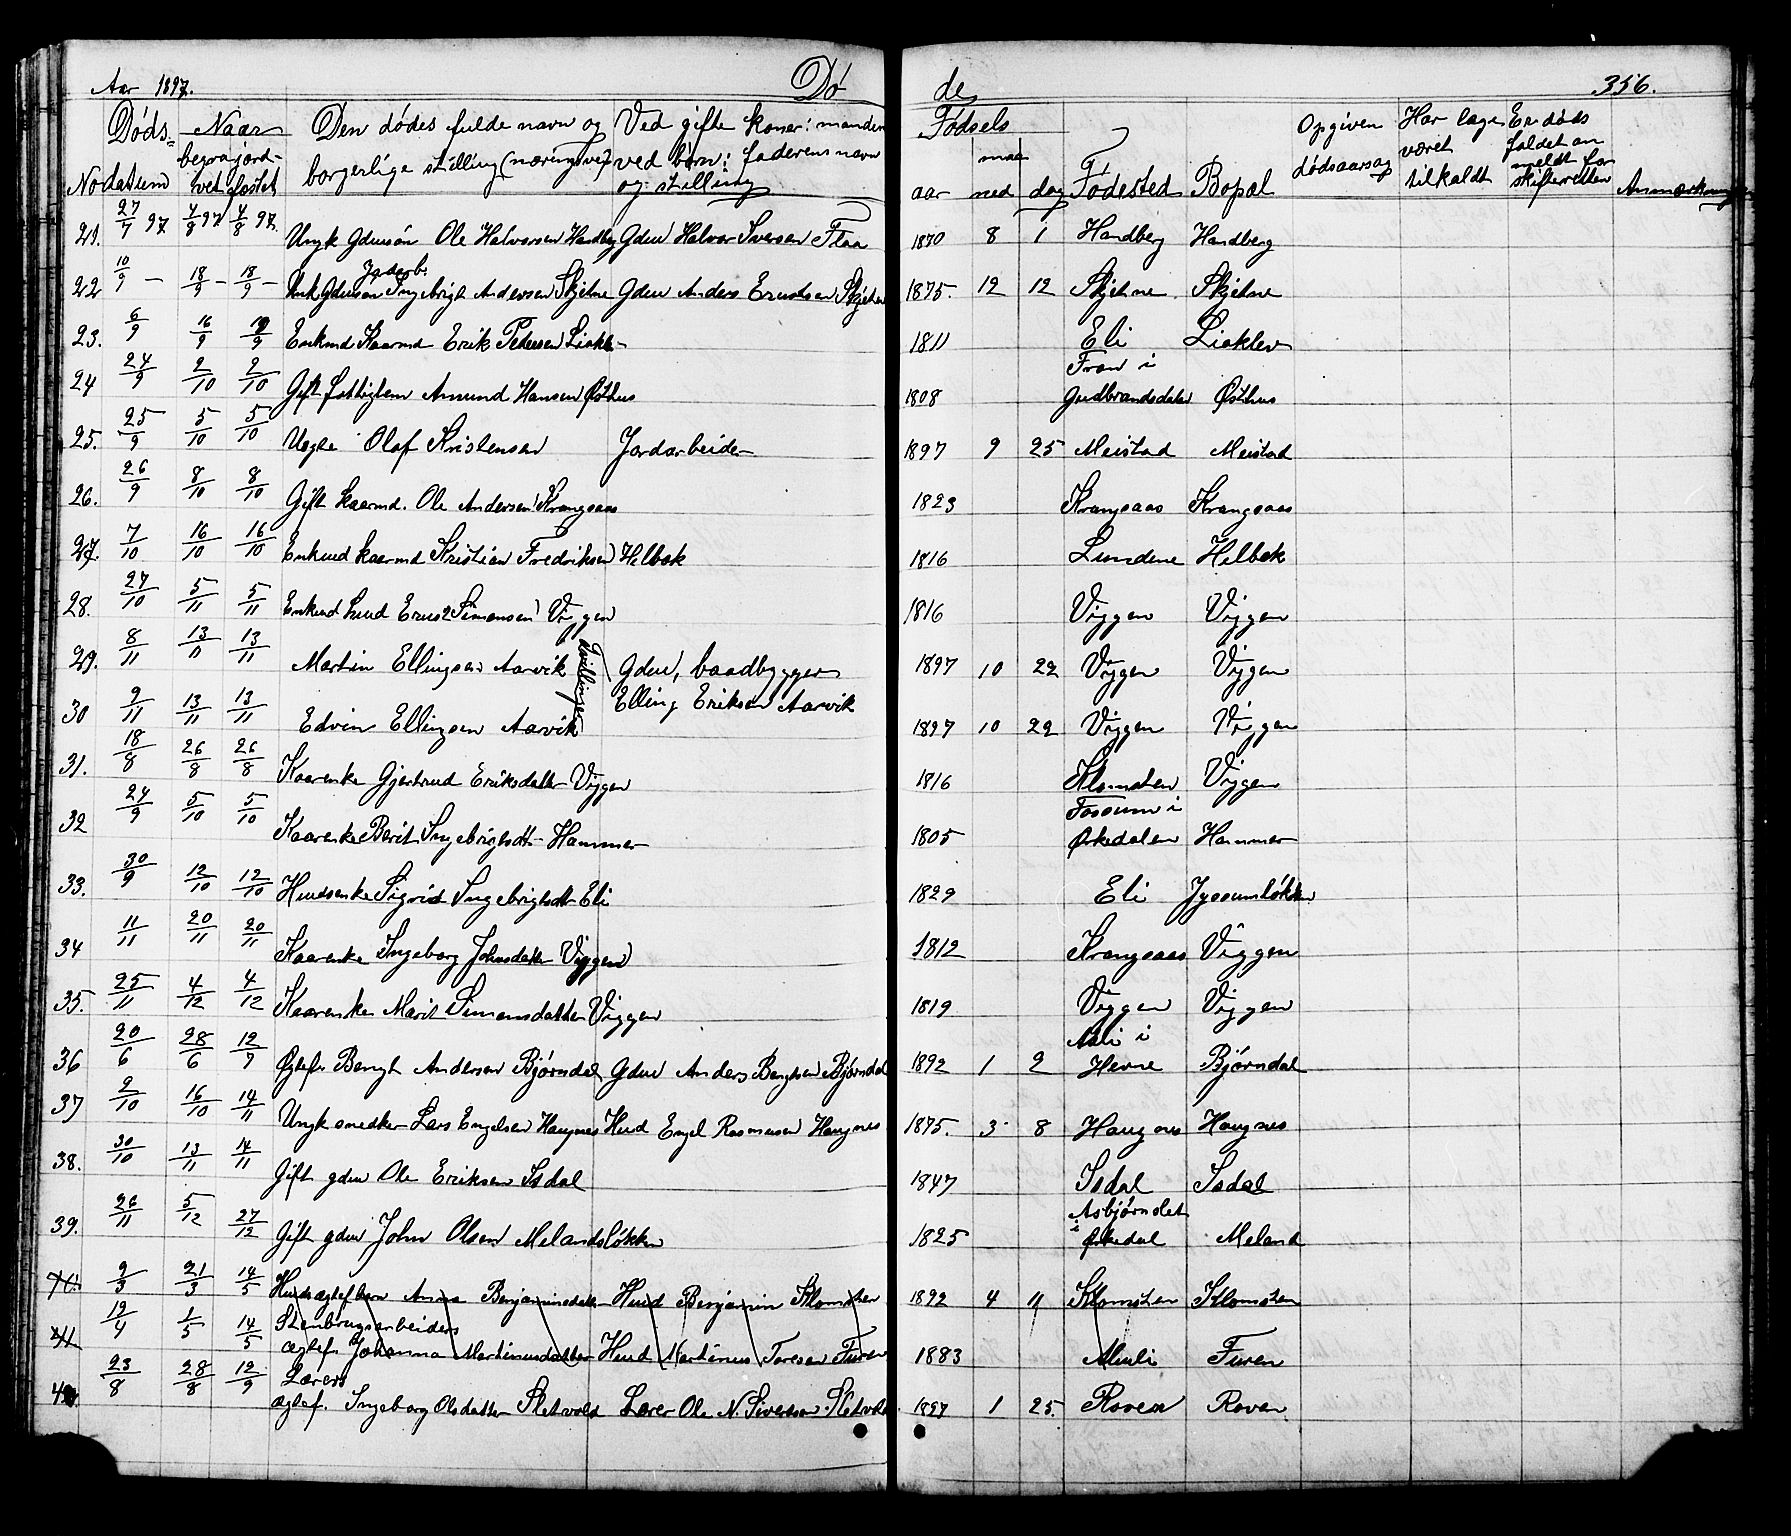 Aar 1897. Dø de 356.
No Døds-datum Naar begravet jord-fæstet Den dødes fulde navn og borgerlige stilling (næringsvei) Ved gifte koner: manden ved børn: faderens navn og stilling Fødsels aar maaned dag Fødested Bopæl Opgiven dødsaarsag Har læge været tilkaldt Er døds faldet anmeldt for skifteretten Anmærkninger
21. 27/7 97 4/8 97 4/8 97. Ungk gdmsøn Ole Halvorsen Handberg Gdm Halvor Iversen Flaa 1870 8 1 Handberg Handberg
22 10/9 – 18/9 – 18/9 – Jordarb. Ungk Gdmsøn Ingebrigt Andersen Skjetne Gdm Anders Erntsen Skjetne 1875. 12 12 Skjetne Skjetne
23. 6/9 16/9 Enkmd Kaarmd Erik Pedersen Liaklev 1811 Eli Liaklev
24 24/9 2/10 2/10 Gift fattiglem Amund Hansen Østhus 1808 Fron i Gudbrandsdalen Østhus
25. 25/9 5/10 5/10 Uægte Olaf Kristensen Jordarbeider 1897 9 25 Meistad Meistad
26. 26/9 8/10 8/10 Gift kaarmd. Ole Andersen Krangsaas 1823 Krangsaas Krangsaas
27. 7/10 16/10 16/10 Enkmd kaarmd Kristian Fredriksen Helbek 1816 Lundene Helbek
28. 27/10 5/11 5/11 Enkmd Simensen Viggen 1816 Viggen Viggen
29. 8/11 13/11 13/11 Martin Ellingsen Aarvik Tvillinger Gdm, baadbygger 1897 10 22 Viggen Viggen
30 9/11 13/11 13/11 Edvin Ellingsen Aarvik Elling Eriksen Aarvik 1897 10 22 Viggen Viggen
31. 18/8 26/8 26/8 Kaarenke Gjertrud Eriksdatter Viggen 1816 Klomsten Viggen
32 24/9 5/10 5/10 Kaarenke Berit Ingebrigtsdt Hammer 1805 Fossum i Ørkedalen Hammer
33. 30/9 12/10 12/10 Husmenke Sigrid Ingebrigtsdt Eli 1829 Eli Jyssumløkken
34 11/11 20/11 20/11 Kaarenke Ingeborg Johnsdatter Viggen 1812 Krangsaas Viggen
35. 25/11 4/12 4/12 Kaarenke Marit Simonsdatter Viggen 1819 Viggen Viggen
36 20/6 28/6 12/7 Ægtefs Bengt Andersen Bjørndal Gdm Anders Bengtsen Bjørndal 1892 1 2 i Hevne Bjørndal
37 9/10 16/10 14/11 Ungk snedker Lars Engelsen Haugnes Husmd Engel Rasmusen Haugnes 1875. 3 8 Haugnes Haugnes
38. 30/10 13/11 14/11 Gift gdm Ole Eriksen Isdal 1847 Isdal Isdal
39. 26/11 5/12 27/12 Gift gdm John Olsen Melandsløkken 1825 Asbjørnslet i Ørkedal Meland
40. 9/3 21/3 14/5 Husmds ægtef barn Anna Benjaminsdatter Husmd Benjamin Klomsten 1892 4 11 Klomsten Klomsten
41 19/4 1/5 14/5 Stenbrugsarbeiders ægtef. Johanna Martinusdatter Husmd Martinus Toresen Furen 1883 Muli Furen
23/8 28/8 12/9 Lærers ægtef. Ingeborg Olsdatter Sletvold Lærer Ole N. Sivertsen Sletvold 1897 1 25. Roven Roven